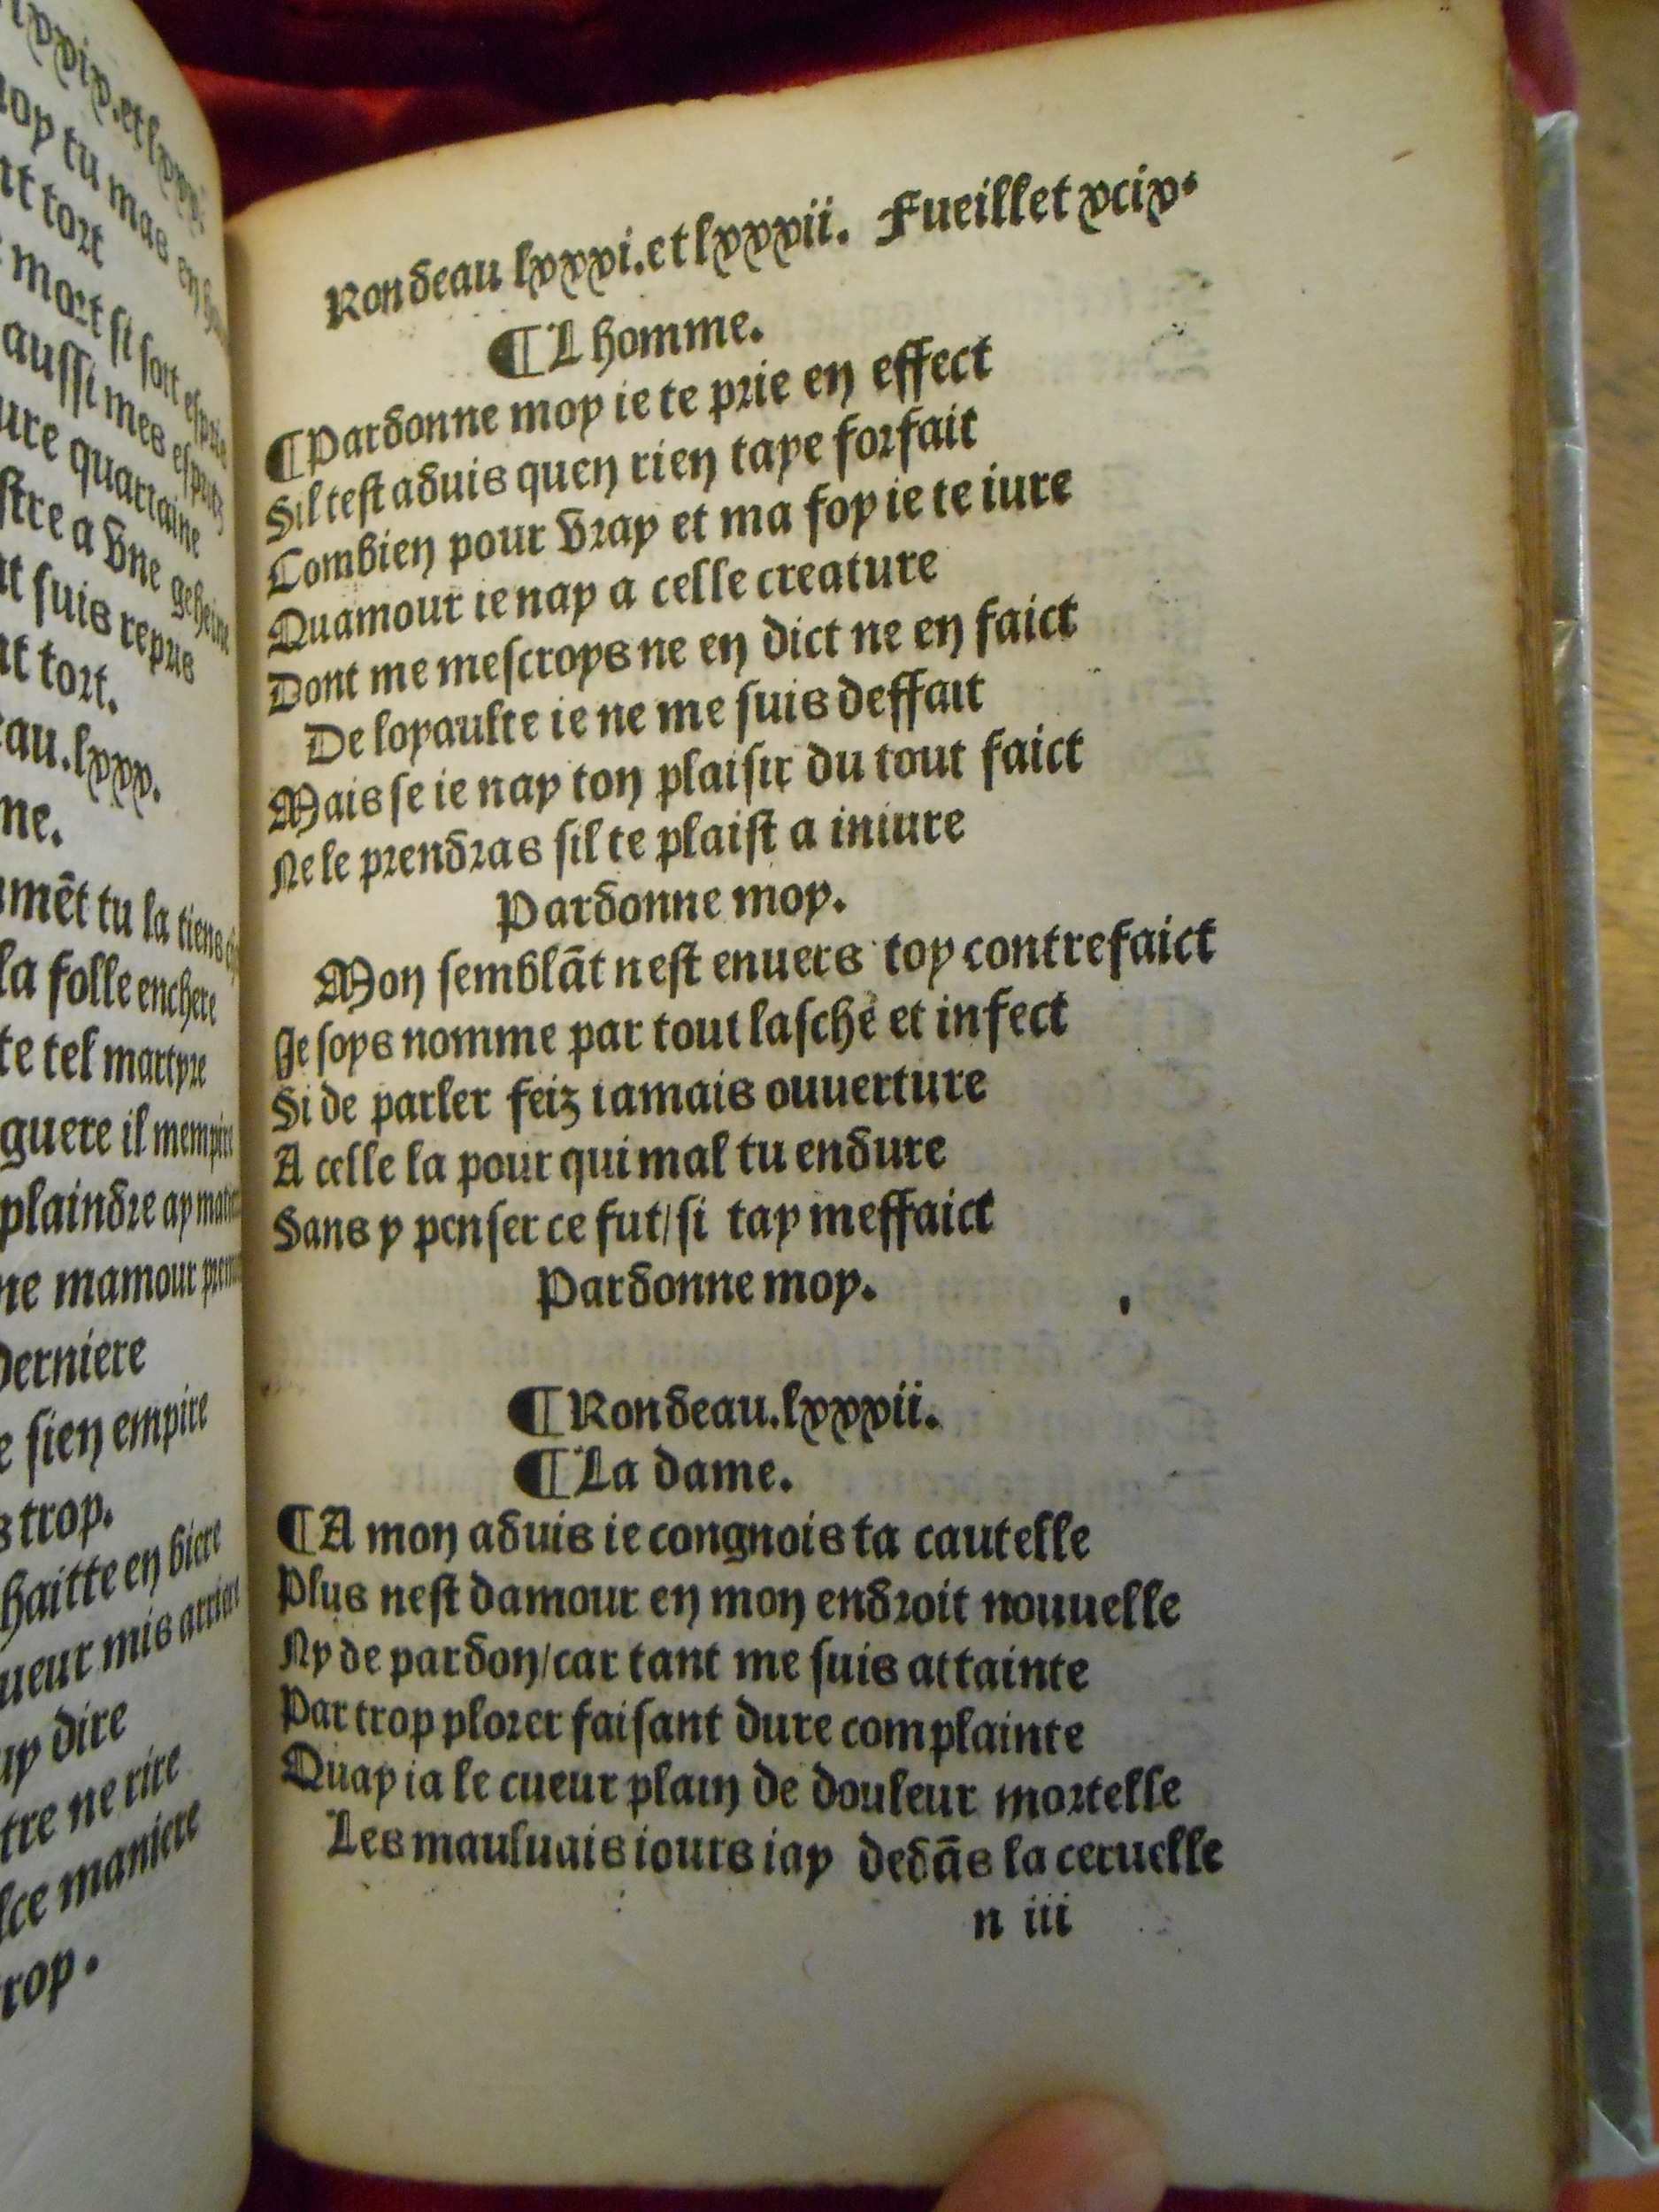 lxxix.et lxxx.
moy tu mas en
nt tort
mort si fort
aussi mes espritz
ure quartaine
stre a vne geheine
t suis repus
nt tort.
au.lxxx.
ne.
mēt tu la tiens
la folle enchere
te tel martyre
guere il mempire
plaindre ay
ne mamour
derniere
e sien empire
s trop.
haitte en biere
ueur mis arriere
uy dire
tre ne rire
lce maniere
rop.
Rondeau lxxxi.et lxxxii. Fueillet xcix.
¶L homme.
¶Pardonne moy ie te prie en effect
Sil test aduis quen rien taye forfait
Combien pour vray et ma foy ie te iure
Quamour ie nay a celle creature
Dont me mescroys ne en dict ne en faict
De loyaulte ie ne me suis deffait
Mais se ie nay ton plaisir du tout faict
Ne le prendras sil te plaist a iniure
Pardonne moy.
Mon semblāt nest enuers toy contrefaict
Je soys nomme par tout lasche et infect
Si de parler feiz iamais ouuerture
A celle la pour qui mal tu endure
Sans y penser ce fut/si tay meffaict
Pardonne moy.
¶Rondeau.lxxxii.
¶La dame.
¶A mon aduis ie congnois ta cautelle
Plus nest damour en mon endroit nouuelle
Ny de pardon/car tant me suis attainte
Par trop plorer faisant dure complainte
Quay ia le cueur plain de douleur mortelle
Les mauluais iours iay dedās la ceruelle
n iii